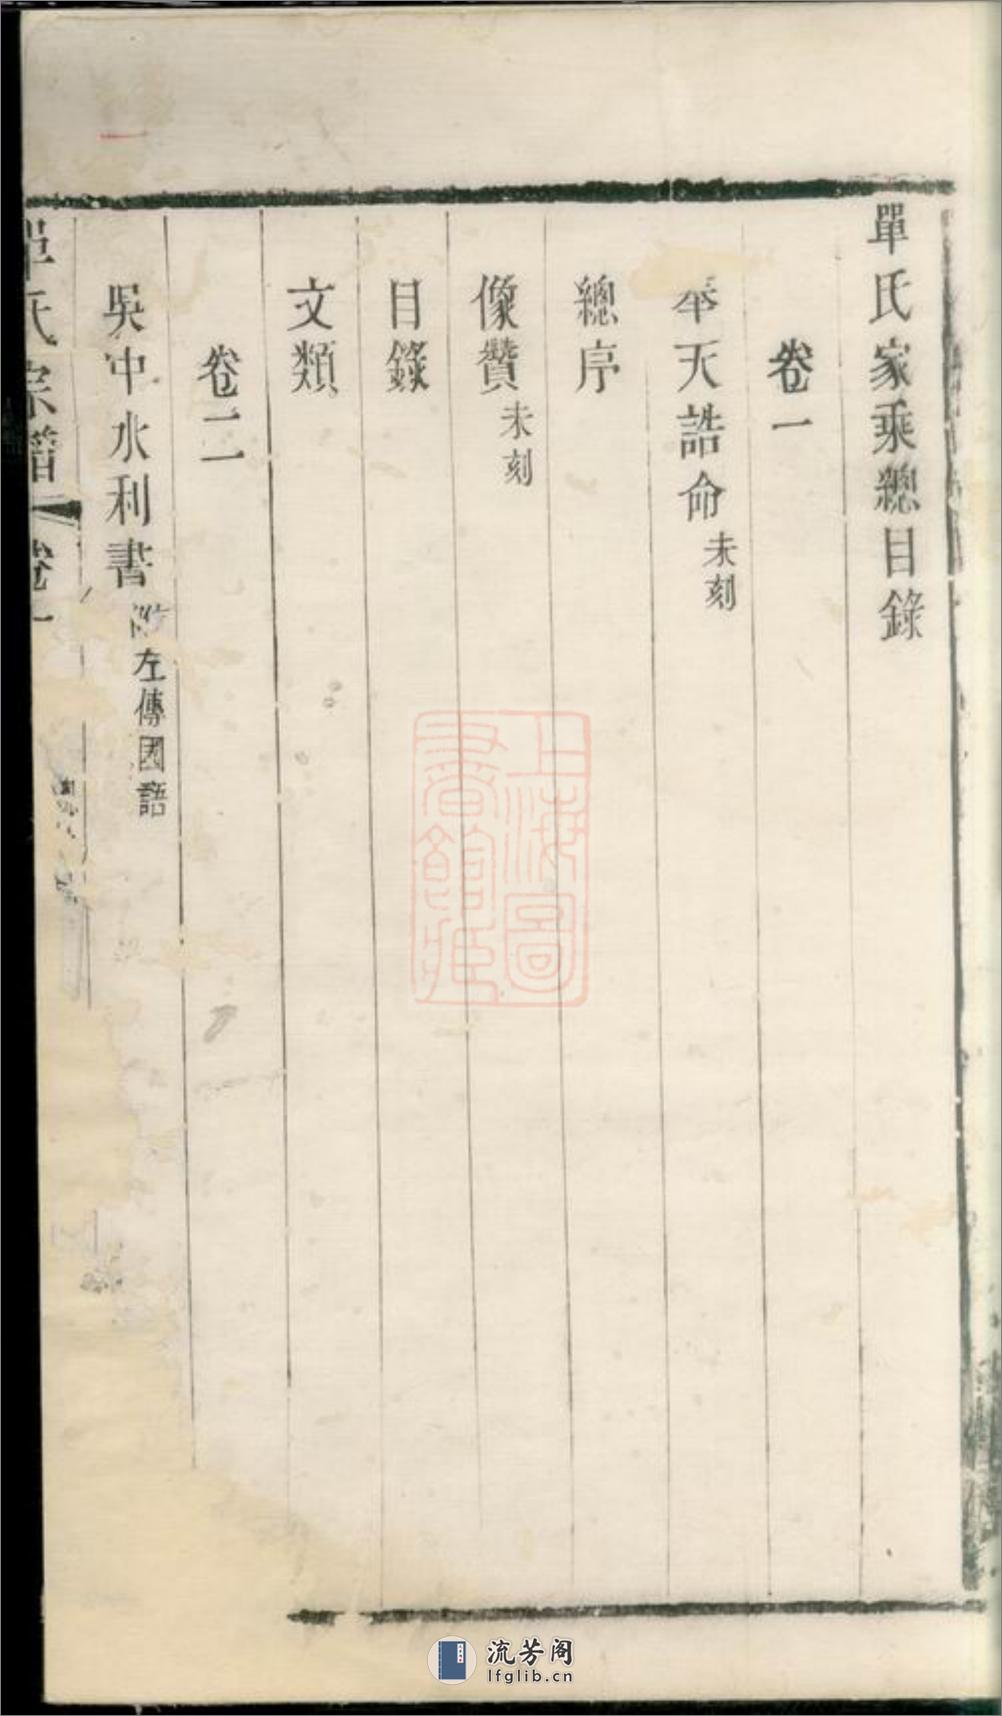 單氏家乘總目錄
卷一
奉天誥命未刻
總序
像贊未刻
目錄
文類
卷二
吳中水利書 左傳國語
單氏宗譜 卷一
上海圖書館藏
流芳阁
lfglib.cn